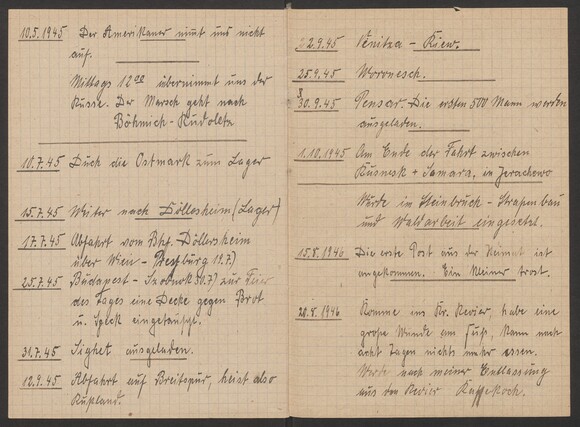 10.5.1945 Der Amerikaner nimt uns nicht
auf.
Mittags 12 00 übernimmt uns der
Russe. Der Marsch geht nach
Böhmich-Rudoletz
10.7.45 Duch die Ostmark zum Lager
15.7.45 Weiter nach Döllesheim (Lager)
17.7.45 Abfahrt vom Bhf. Döllersheim
über Wien - Pressburg 19.7.)
25.7.45 Budapest - Szolnok 30.7) zur Feier
des Tages eine Decke gegen Brot
u. Speck eingetauscht.
31.7.45 Sighet ausgeladen.
12.9.45 Abfahrt auf Breitspur, heist also
Rußland.
22.9.45 Venitza - Kiew.
25.9.45 Woronesch.
30.9.45 Pensar. Die ersten 500 Mann werden
ausgeladen.
1.10.1945 Am Ende der Fahrt zwischen
Kusnesk + Samara, in
Werde in Steinbruch - Straßenbau
und Waldarbeit eingesetzt.
15.8.1946 Die erste Post aus der Heimat ist
angekommen. Ein kleiner Trost.
28.8.1946 Komme ins Kr. Revier, habe eine
große Wunde am Fuß, kann nach
acht Tagen nichts mehr essen.
Werde nach meiner Entlassung
aus dem Revier Kaffekoch.